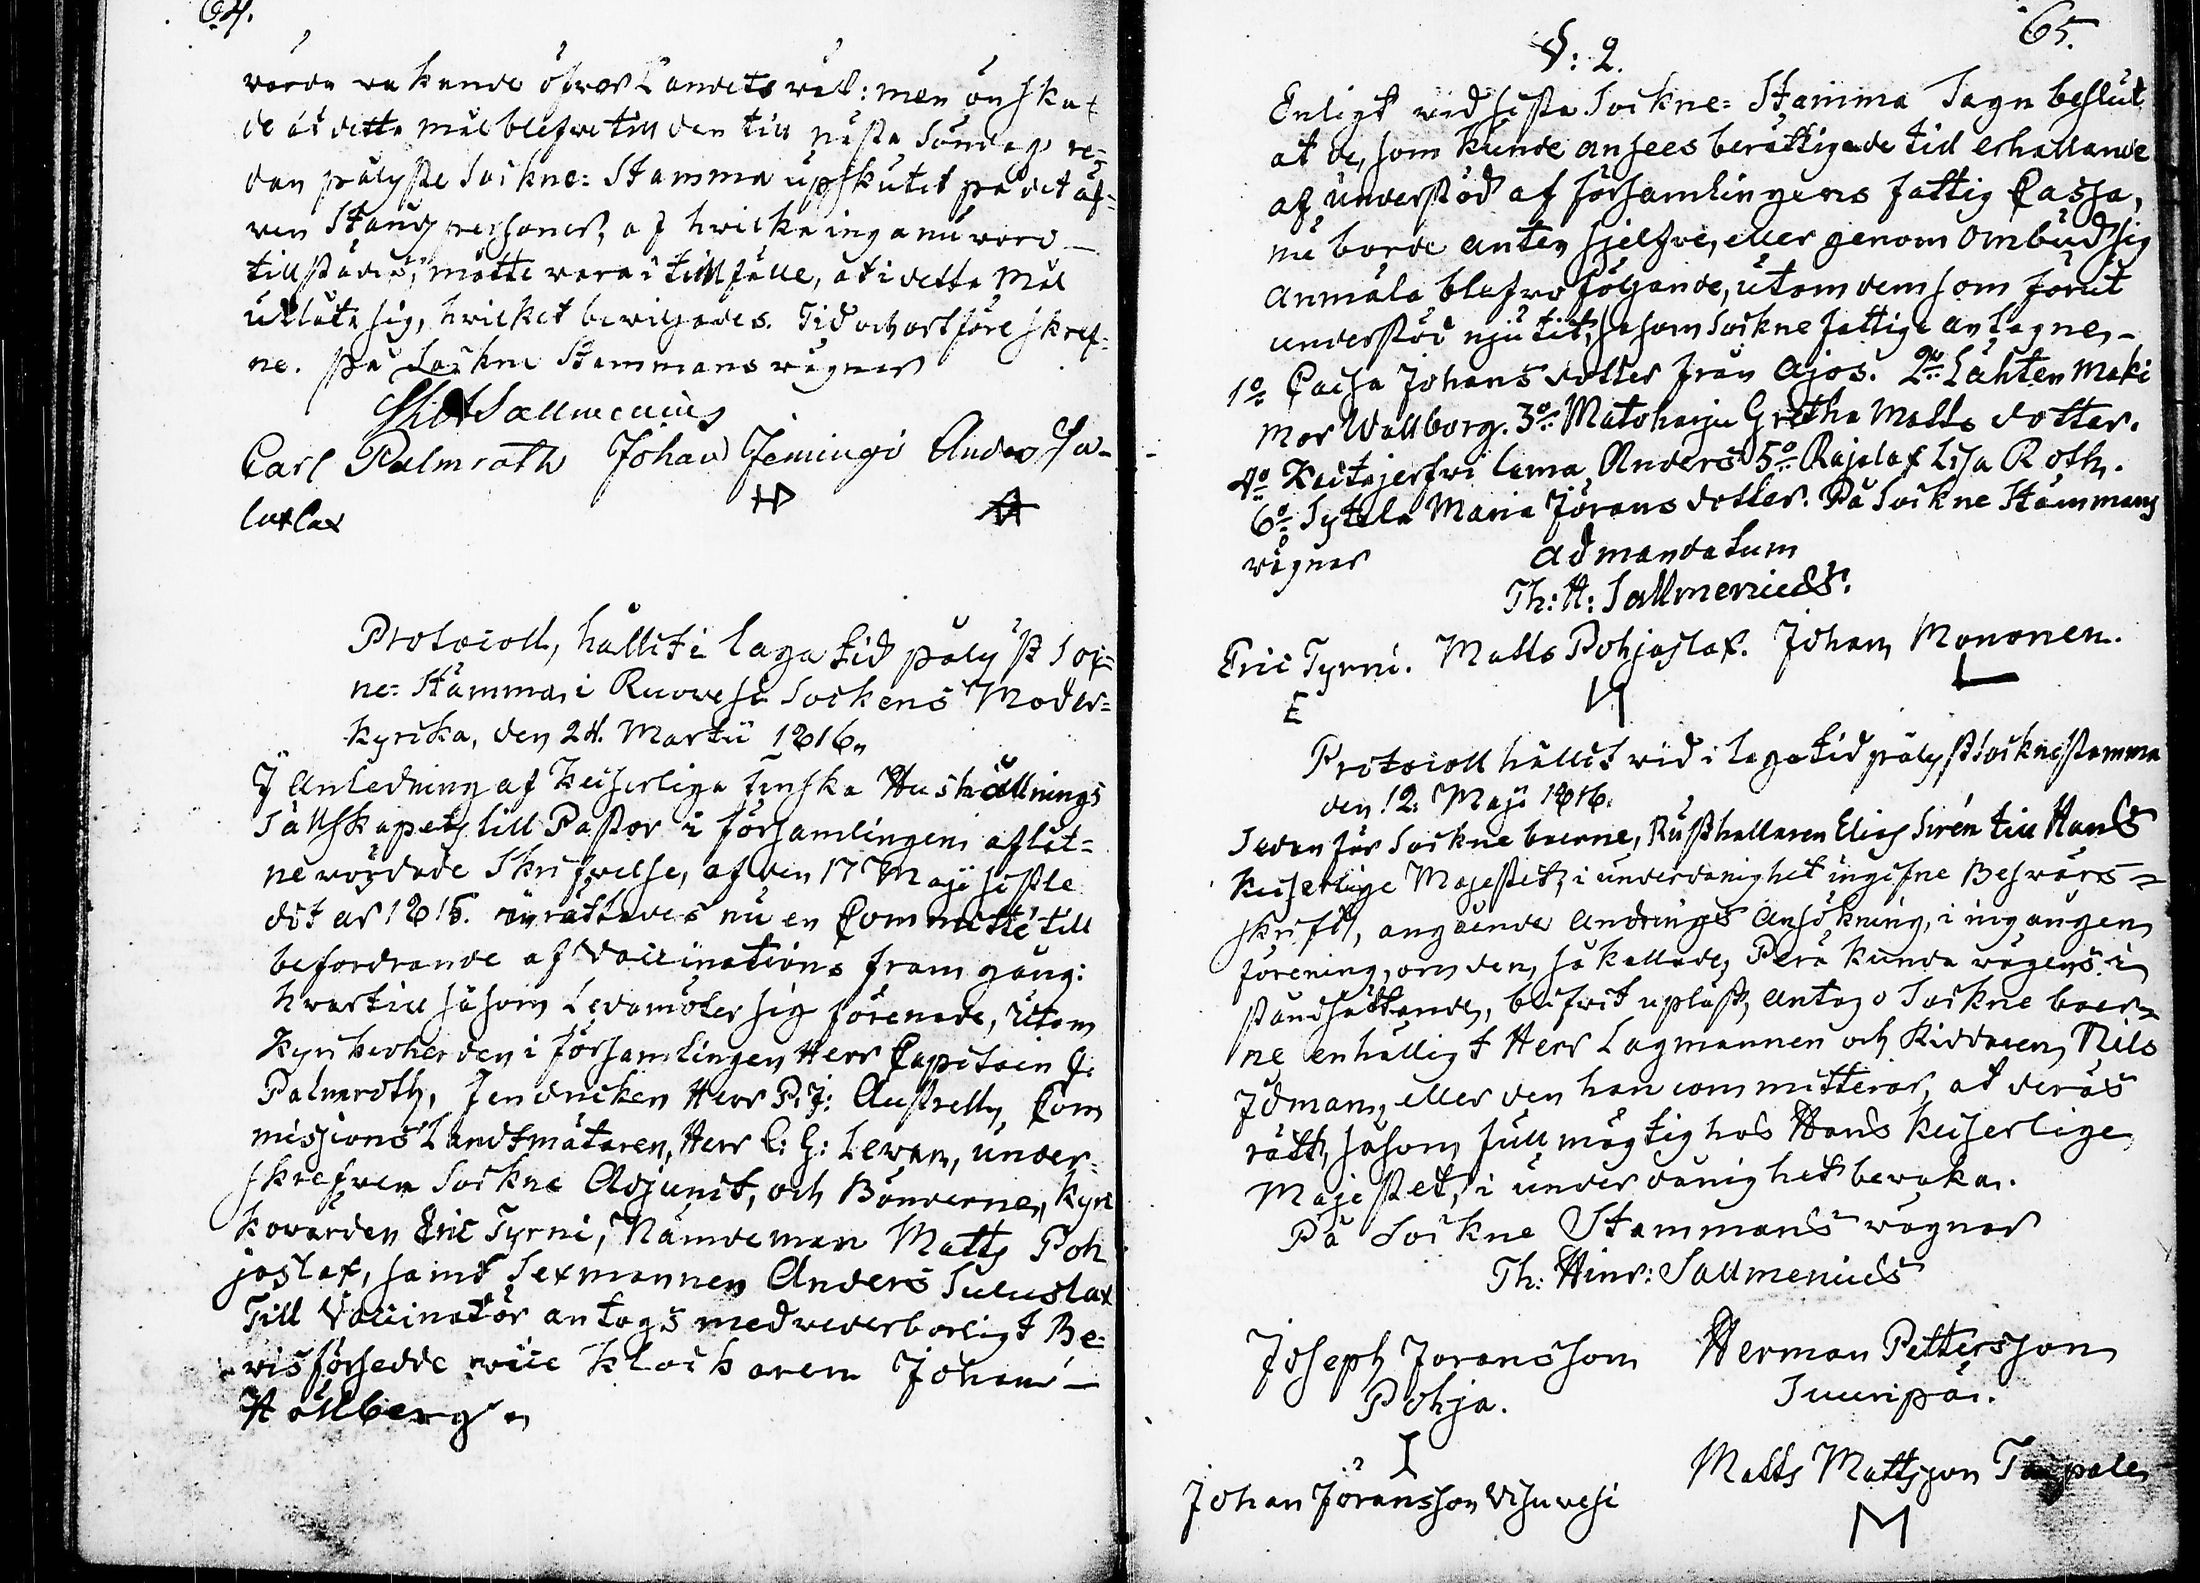 64.
warda wakande öfver Landets wäl: men önska-
de at detta mål blefve till den till nästa Söndag re-
dan pålyste Sockne-Stamma upskutit på det äf-
ven Ståndspersoner, af hvilka inga nu voro
tillstädes, måtte vara i tillfälle, at i detta Mål
utlåta sig, hvilket bewiljades. Tid och ort föreskref-
ne. På Sockne Stammans wägnar
Sallmenius
Carl Palmroth Johan Jemingi Anders Su-
luslax
Protocoll, hållit i laga tid pålyst Sok-
ne-Stämma, i Ruowesi Sockens Moder-
kyrka, den 24. Martii 1816.
I Anledning af Keiserliga Finska Hushållnings
Sällskapets till Pastor i församlingen aflåt-
ne wördade Skrifwelse, af den 17 Maji sistle-
dit år 1815. inrättades nu en Committé till
befordrande af Vaccinations framgång:
hwartill såsom Ledamöter sig förenade, utom
Kyrkioherden i församlingen Herr Capitain C.
Palmroth, Fendricken Herr P. J: Austrell, Com
missions Landtmätaren, Herr C: G: Lewan, under-
skrefven Sockne Adjunct, och Bönderne, Kyrc
kovärden Eric Tyrni, Nämdeman Matts Poh
joslax, samt Sexmannen Anders Suluslax
Till Vaccinatör antogs med wederborligt Be-
wis försedde wice Klockaren Johan
Hållberg
65.
§: 2.
Enligt wid sista Sockne-Stamma Tagn beslut
at de, som kunde ansees berättigade till erhallande
af understöd af församlingens fattig Cassa,
nu borde anten sjelfve, eller genom Ombud sig
anmäla blefwo följande, utom dem som förut
understöd njutit, såsom Sockne fattige antagne,
1o Caisa Johans dotter från Ajos. 2o Lähten Maki
Mor Wallborg. 3o Matoharju Gretha Matts dotter.
4o Keitajerfwi lama Anders 5o Rajalax Lisa Roth.
6o Sytela Maria Jörans dotter. På Sockne Stämmans
wägnar ad mandatum
Th: H: Sallmenius.
Eric Tyrni. Matts Pohjoslax. Johan Mononen.
E
Protocoll hållit wid i laga tid pålyst Socknestamma
den 12. Maji 1816.
Sedan för Sockneboerne, Rusthallaren Elias Sirén till Hans
Keiserlige Majestet, i underdånighet ingifne Beswärs-
skrift, angående Andrings Ansökning, i ingången
förening, om den, så kallade, Perä kunda wägens i
ståndsättande, blifwit upläst, antogo Sockne boer-
ne enhälligt Herr Lagmannen och Riddaren Nils
Idman, eller den han committerar, at deras
rätt, såsom fullmägtig hos Hans Keiserlige
Majestet, i underdånighet bewaka.
På Sockne Stammans wägnar
Th: Hinr: Sallmenius
Joseph Joransson Herman Pettersson
Pohja. Suuripää.
Matts Mattsson Taipale
Johan Jöransson Visuvesi
M